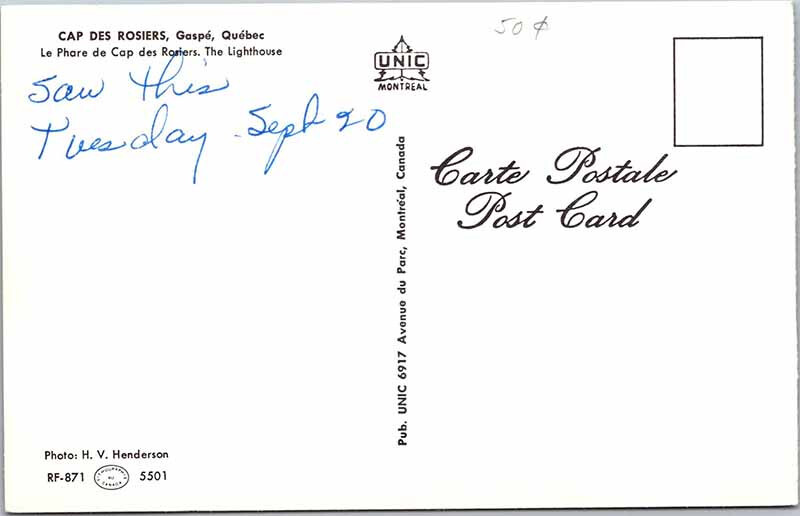 CAP DES ROSIERS, Gaspé, Québec
Le Phare de Cap des Rosiers. The Lighthouse
Saw this
Tuesday Sept 20
UNIC
MONTREAL
50¢
Carte Postale
Post Card
Pub. UNIC 6917 Avenue du Parc, Montréal, Canada
Photo: H. V. Henderson
RF-871 LITHOGRAPHIE AU CANADA 5501